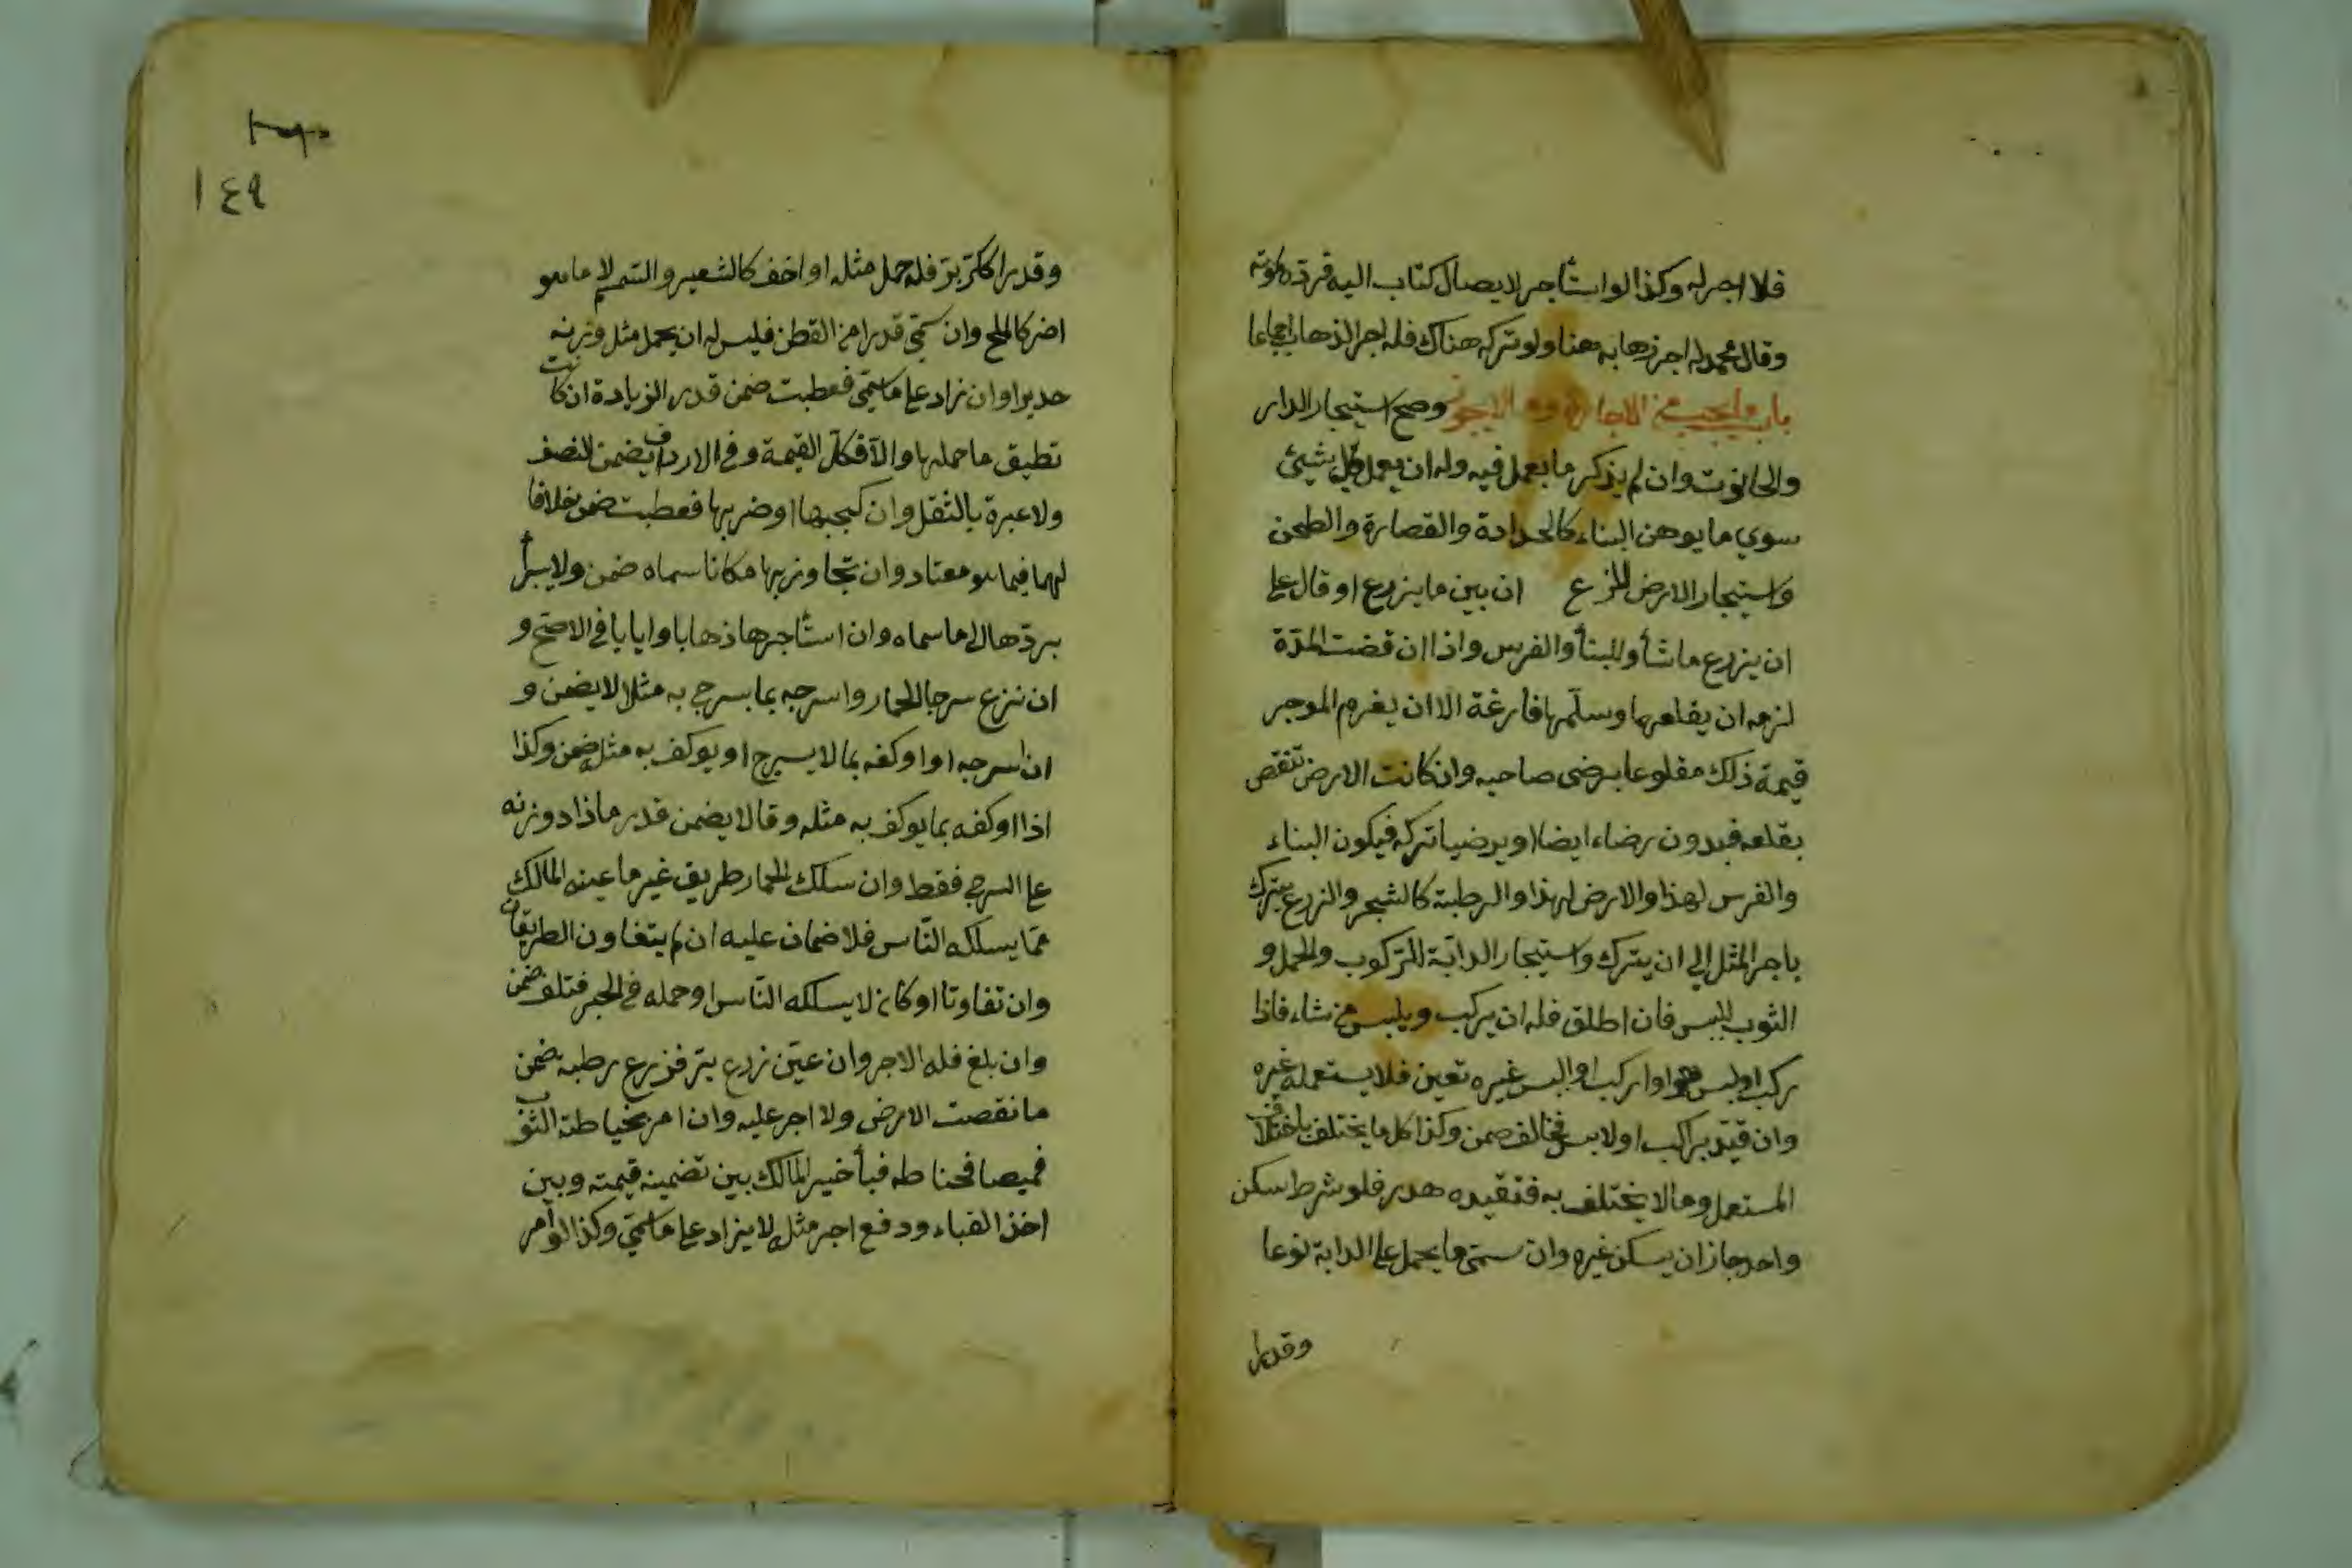 فلا اجر له وكذا لو استأجر لايصال كتاب اليه فرده لموته
وقال محمد له اجر ذهابه هنا ولو تركه هناك فله اجر الذهاب اجماعا
باب ما يجب من الاجارة وما لا يجوز وصح استيجار الدار
والحانوت وان لم يذكر ما يعمل فيه وله ان يعمل كل شيئ
سوي ما يوهن البناء كالحدادة والقصارة والطحن
واستيجار الارض للزرع ان بين ما يزرع او قال على
ان يزرع ما شأ وللبنأ والغرس واذا انقضت المدة
لزمه ان يقلعهما وسلمها فارغة الا ان يغرم الموجر
قيمة ذلك مقلوعا برضى صاحبه وان كانت الارض تنقص
بقلعه فبدون رضاء ايضا او يرضيا تركه فيكون البناء
والغرس لهذا والارض لهذا والرطبة كالشجر والزرع يترك
باجر المثل الي ان يترك واستيجار الدابة للركوب والحمل و
الثوب للبس فان اطلق فله ان يركب ويلبس من شاء فاذا
ركب او لبس هو او اركب او البس غيره تعين فلا يستعمله غيره
وان قيد براكب او لابس فخالف ضمن وكذا كل ما يختلف باختلاف
المستعمل وما لا يختلف به فتقيده هدر فلو شرط سكن
واحد جاز ان يسكن غيره وان سمى ما يحمل على الدابة نوعا
وقدرا
١٤٩
وقدرا ككر بر فله حمل مثله او اخف كالشعير والسمسم لا ما هو
اضر كالملح وان سمي قدرا من القطن فليس له ان يحمل مثل وزنه
حديدا وان زاد على ما سمى فعطبت ضمن قدر الزيادة ان كانت
تطيق ما حملها والا فكل القيمة وفي الارداف يضمن النصف
ولا عبرة بالثقل وان كبحها او ضربها فعطبت ضمن خلافا
لهما فيما هو معتاد وان تجاوز بها مكانا سماه ضمن ولا يبرأ
بردها الى ما سماه وان استأجرها ذهابا وايابا في الاصح و
ان نزع سرجا لحمار واسرجه بما يسرج به مثله لا يضمن و
ان اسرجه او اوكفه بما لا يسرج او يوكف به مثله ضمن وكذا
اذا اوكفه بما يوكف به مثله وقالا يضمن قدر ما ذاد وزنه
على السرج فقط وان سلك الحمار طريق غير ما عينه المالك
مما يسلكه الناس فلا ضمان عليه ان لم يتفاون الطريقان
وان تفاوتا او كان لا يسلكه الناس او حمله في البحر فتلف ضمن
وان بلغ فله الاجر وان عين زرع بر فزرع رطبه ضمن
ما نقصت الارض ولا اجر عليه وان امر بخياطة الثوب
قميصا فخاطه قبأ خير المالك بين تضمينه قيمته وبين
اخذ القباء ودفع اجر مثله لا يزاد على ما سمي وكذا لو امر